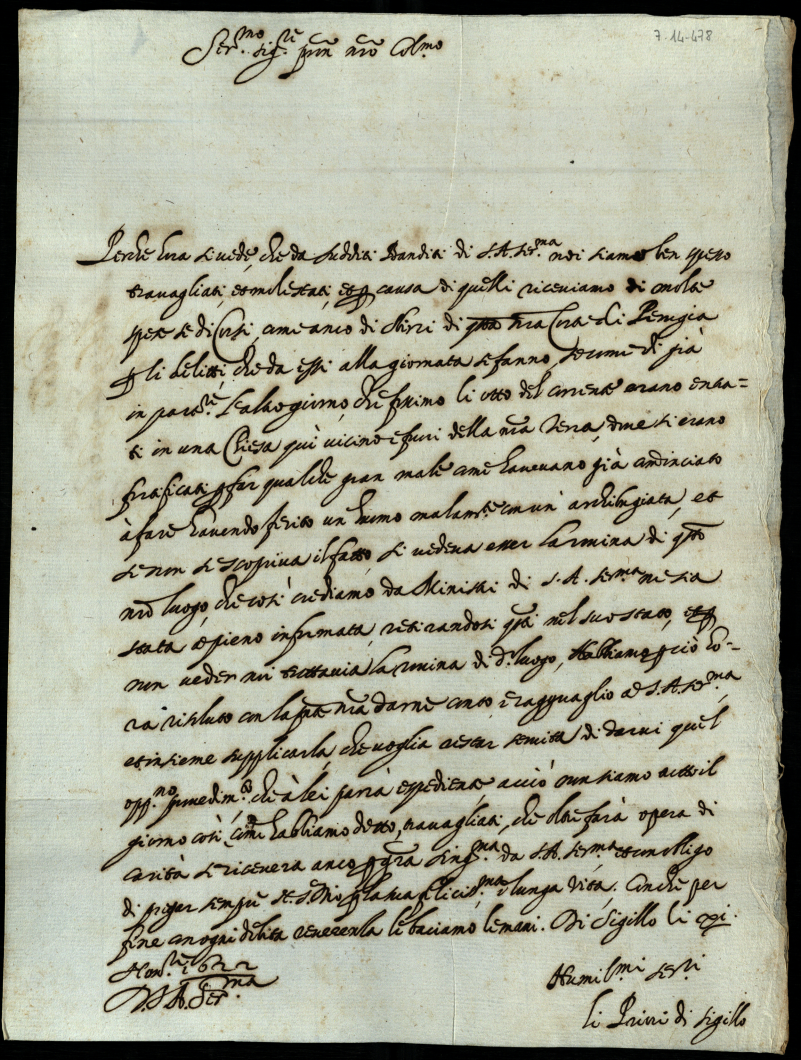 7-14-478
Ser.mo Sig.re pron nro Col.mo
Perche hora si vede, che da sudditi banditi di S. A. Ser.ma noi siamo ben spesso
travagliati, et molestati, et p causa di quelli riceviamo di molte
spese se di Corsi, come anco di sbirri di qsta nra Corte di Perugia
p li delitti, che da essi alla giornata si fanno, secome di già
in parte. Sealtro giorno, che fussimo li otto del corrente erano entra=
ti in una Chiesa quì vicino e fuori della nra Terra, dove si erano
fortificati p far qualche gran male come havevano già cominciato
à fare havendo ferito un homo malam.te con un' archibugiata, et
se non si scopriva il fatto, si vedeva esser la ruina di qsto
nro luogo, che così crediamo da Ministri di S. A. Ser.ma ne sia
stata apieno informata, retirandosi qsti nel suo stato, et p
non veder noi tuttavia la ruina di d.o luogo, Habbiamo p ciò ho=
ra risoluto con la pnte nra darne conto, e ragguaglio a S. A. Ser.ma
et insieme supplicarla, che voglia restar servita di darvi quel
opp.no provedim.to che à lei parrà espediente acciò non siamo tutto il
giorno così come habbiamo detto, travagliati, che oltre farà opera di
carità se riceverà anco p gra sing.ma da S. A. Ser.ma et con obligo
di pregar sempre S. D. Mta p la sua felicis.ma e lunga Vita. Con che per
fine con ogni debita reverenza le baciamo le mani. Di Sigillo li xxi
Nov.re 1622
D. S. A. Ser.ma
Humil.mi ser.ri
li Priori di Sigillo